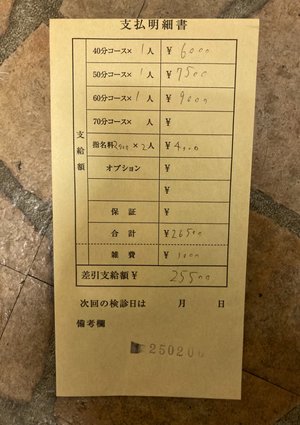 支払明細書
40分コース× 1人 ¥ 6000
50分コース× 1人 ¥ 7500
60分コース× 1人 ¥ 9000
70分コース× 人 ¥
指名料2000×2人 ¥ 4000
オプション ¥
¥
保証 ¥
合計 ¥ 26500
雑費 ¥ 1000
差引支給額 ¥ 25500
支給額
次回の検診日は 月 日
備考欄